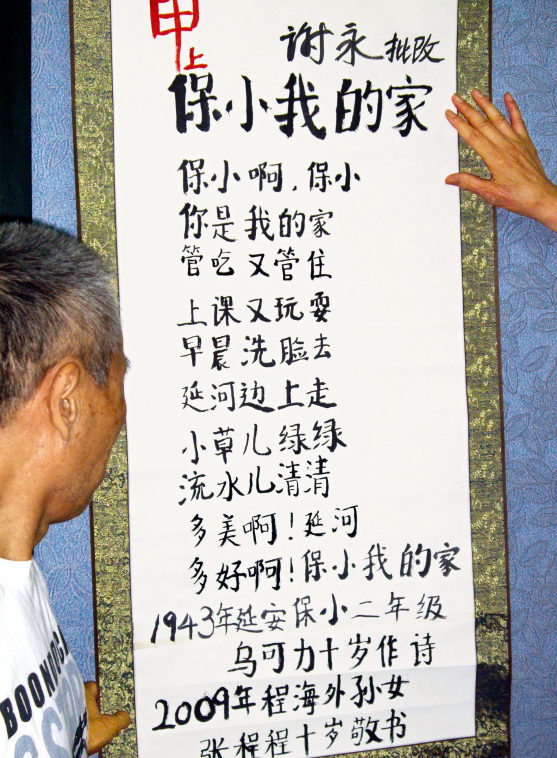 甲上
谢永批改
保小我的家
保小啊,保小
你是我的家
管吃又管住
上课又玩耍
早晨洗脸去
延河边上走
小草儿绿绿
流水儿清清
多美啊!延河
多好啊!保小我的家
1943年延安保小二年级
乌可力十岁作诗
2009年程海外孙女
张程程十岁敬书